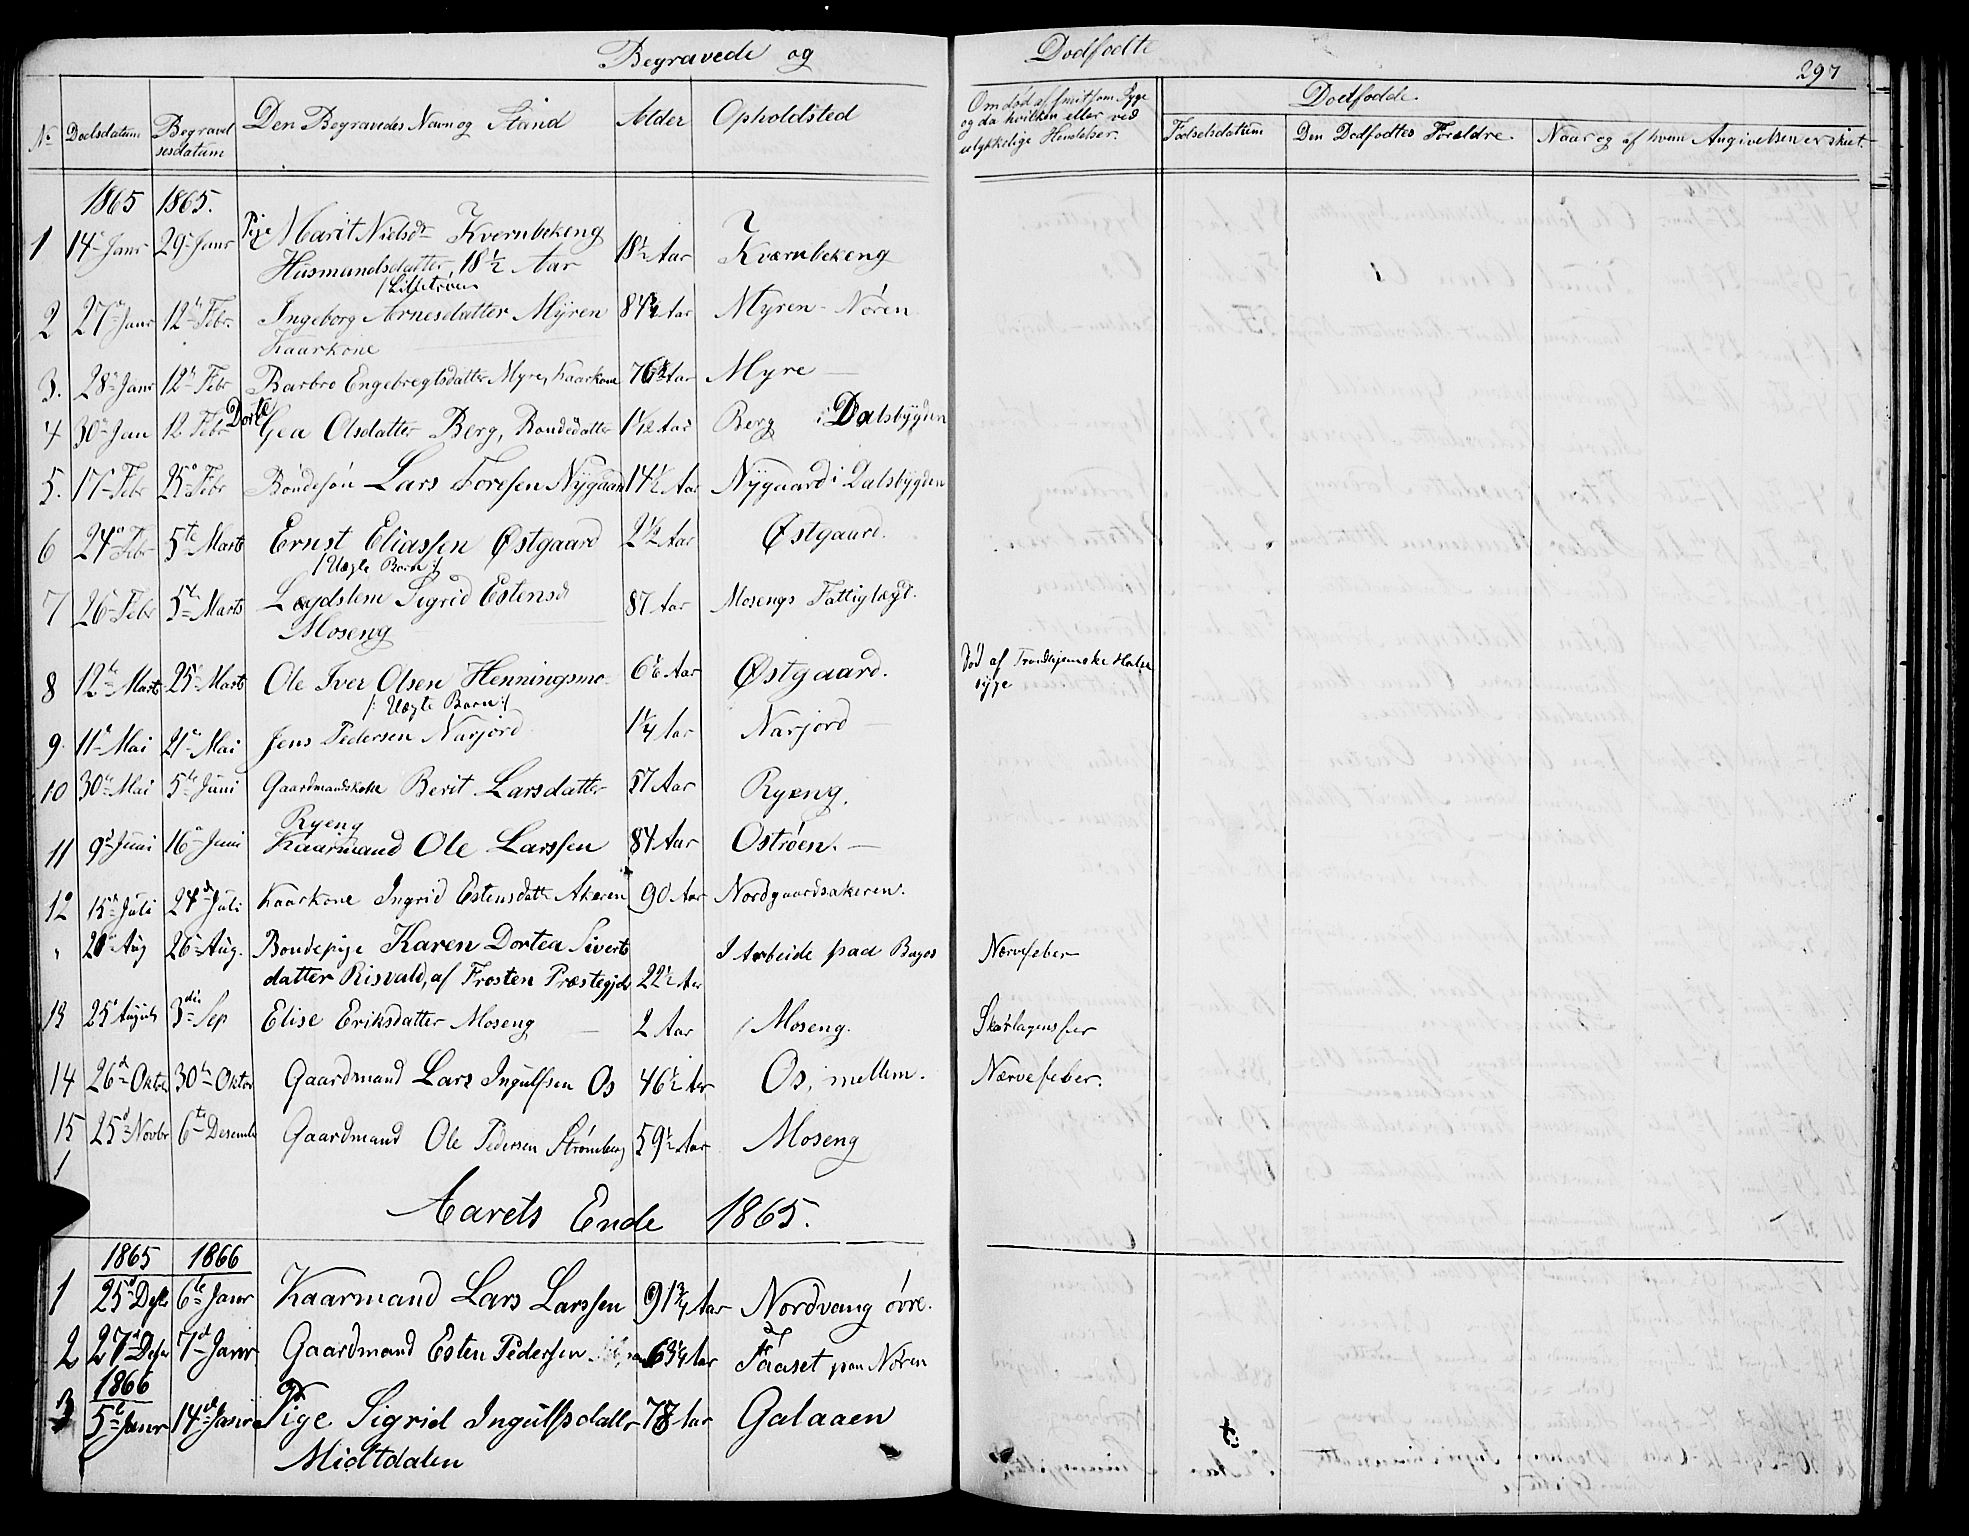 Begravede og Dodfodte
297
No Doedsdatum Begravelsesdatum Den Begravedes Navn og Stand Alder Opholdsted
Om død af smitsom Syge
og da hvilken eller ved
ulykkelige Hendelser.
Dodfodde.
Fødselsdatum Den Dodfodtes Foreldre. Naar og af hvem Angivelsen er skiet.
1865 1865.
1 14de Janr 29de Janr Pige Marit Nielsdr Kvernbekeng 18½ Aar Kværnbekeng
Husmandsdatter, 18½ Aar
2 27de Janr 12te Febr. Ingeborg Arnesdatter Myren 84¾ Aar Myren - Nóren
Kaarkone
3. 28de Janr 12te Febr Barbro Engebregtsdatter Myre, Kaarkone 76½ Aar Myre —
4 30te Jan 12 Febr Dorte Gea Olsdatter Berg, Bondedatter Berg i Dalsbygden
5. 17de Febr 25de Febr Bóndesón Lars Toresen Nygaard 14½ Aar Nygaard i Dalsbygden
6 24de Febr 5te Marts Ernst Eliassen Østgaard 2½ Aar Østgaard.
/: Uægte Barn :/
7 26de Febr 5te Marts Lægdslem Sigrid Estensd 87 Aar Mosengs Fattiglægt.
Moseng
8 12te Marts 25de Marts Ole Iver Olsen Henningsmo 6⅙ Aar Østgaard. Død af Trondhjemske Halse
syge
/: Uægte Barn :/
9. 11te Mai 21de Mai Jens Pedersen Narjord 1¼ Aar Narjord —
10 30te Mai 5te Juni Gaardmandskone Berit Larsdatter 57 Aar Ryeng.
Ryeng
11 9de Juni 16de Juni Kaarmand Ole Larssen 84 Aar Ostróen. —
12 15de Juli 24de Juli Kaarkone Ingrid Estensdatt Akeren 90 Aar Nordgaardsakeren.
" 20de Aug 26de Aug. Bondepige Karen Dortea Siverts I Arbeide paa Nærvefeber
datter Risvald, af Frosten Præstegjeld 22½ Aar
13 25de August 3die Sep Elise Eriksdatter Moseng — 2 Aar Moseng. Skarlagensfer
14 26de Oktbr 30te Oktbr Gaardmand Lars Ingulfsen Os 46½ Aar Os, mellem. Nærvefeber.
15 25de Novbr 6te Desemb Gaardmand Ole Pedersen Strömberg 59½ Aar Moseng
Aarets Ende 1865.
1865 1866
1 25de Desbr 6te Janr Kaarmand Lars Larssen 91¾ Aar Nordvang óvre.
2 27de Desbr 7de Janr Gaardmand Esten Pedersen 63¼ Aar Faaset paa Nóren
1866
3 5te Janr 14de Janr Pige Sigrid Ingulfsdatter 78 Aar Galaaen
Midtdalen